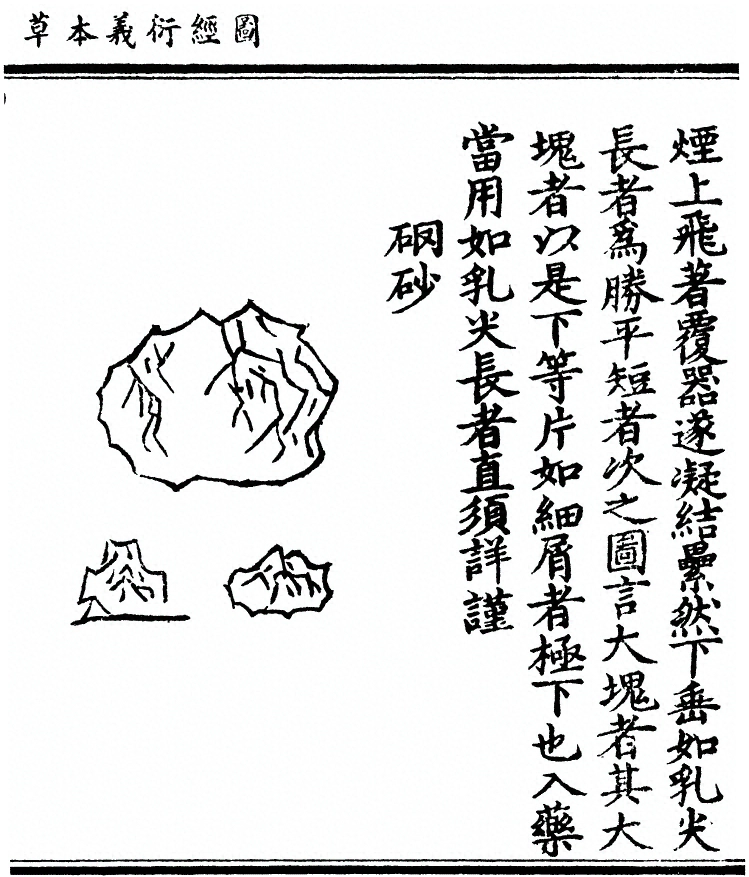 圖經衍義本草
煙上飛著覆器遂凝結纍然下垂如乳尖
長者爲勝平短者次之圖言大塊者其大
塊者以是下等片如細屑者極下也入藥
當用如乳尖長者直須詳謹
硇砂